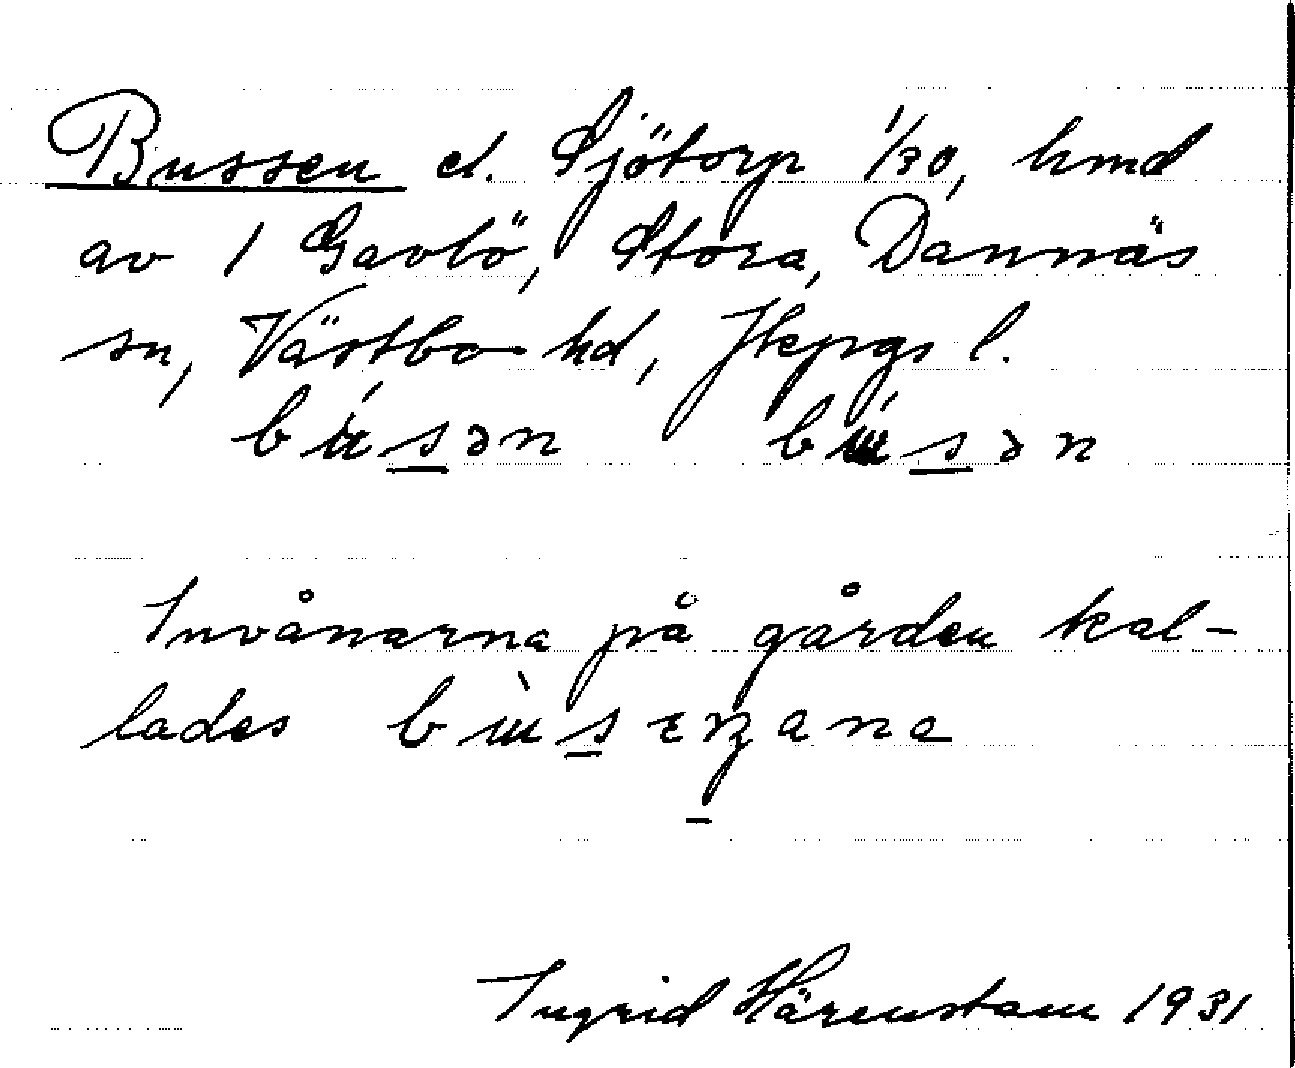 Bussen el. Sjötorp 1/30, hmd
av 1 Gavlö, Stora, Dannäs
sn, Västbo hd, Jkpgs l.
búsən búsən
Invånarna på gården kal-
lades
Ingrid Härenstam 1931